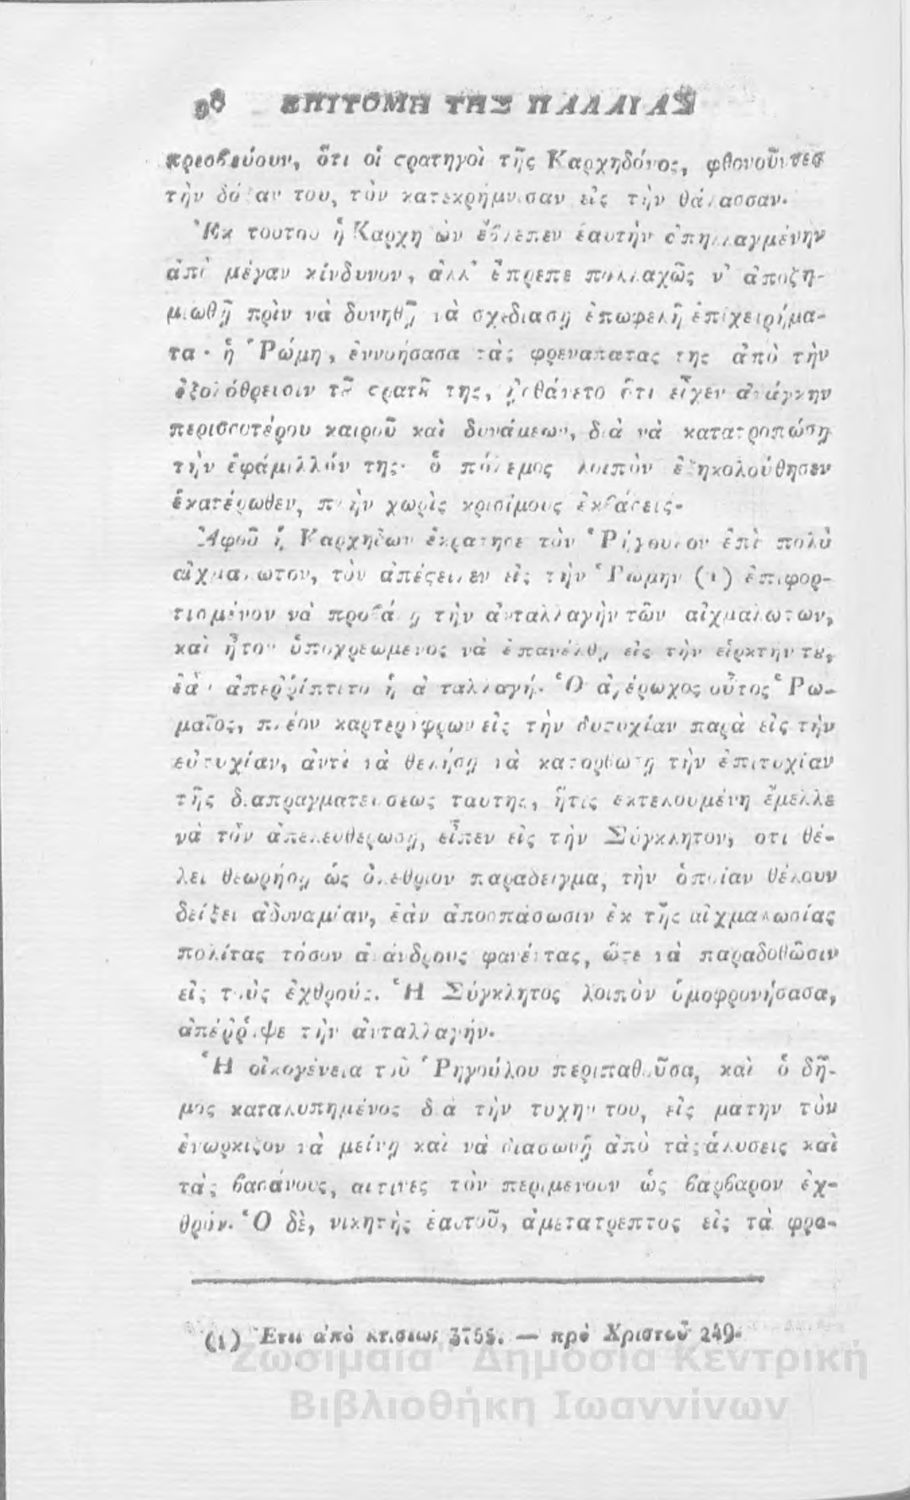 98 ΕΠΙΤΟΜΗ ΤΗΣ ΠΑΛΑΙΑΣ
πρεσβεύουν, ὅτι οἱ ςρατηγοὶ τῆς Καρχηδόνος, φθονοῦντες
τὴν δόξαν του, τὸν κατεκρήμνισαν εἰς τὴν θάλασσαν.
Ἐκ τούτου ἡ Καρχηδὼν ἔβλεπεν ἑαυτὴν ἀπηλλαγμένην
ἀπὸ μέγαν κίνδυνον, ἀλλ' ἔπρεπε πολλαχῶς ν' ἀποζη-
μιωθῇ πρὶν νὰ δυνηθῇ νὰ σχεδιάσῃ ἐπωφελῆ ἐπιχειρήμα-
τα· ἡ Ῥώμη, ἐννοήσασα τὰς φρεναπάτας της ἀπὸ τὴν
ἐξολόθρευσιν τȣ͂ ςρατȣ͂ της, ᾐσθάνετο ὅτι εἶχεν ἀνάγκην
περισσοτέρου καιροῦ καὶ δυνάμεων, διὰ νὰ κατατροπώσῃ
τὴν ἐφάμιλλόν της· ὁ πόλεμος λοιπὸν ἐξηκολούθησεν
ἑκατέρωθεν, πλὴν χωρὶς κρισίμους ἐκβάσεις.
Ἀφοῦ ἡ Καρχηδὼν ἐκράτησε τὸν Ῥήγουλον ἐπὶ πολὺ
αἰχμάλωτον, τὸν ἀπέςειλεν εἰς τὴν Ῥώμην (1) ἐπιφορ-
τισμένον νὰ προβάλῃ τὴν ἀνταλλαγὴν τῶν αἰχμαλώτων,
καὶ ἦτον ὑποχρεωμένος νὰ ἐπανέλθῃ εἰς τὴν εἱρκτήν τȣ,
ἐὰν ἀπερρίπτετο ἡ ἀνταλλαγή. Ὁ ἀγέρωχος οὗτος Ῥω-
μαῖος, πλέον καρτερόφρων εἰς τὴν δυτυχίαν παρὰ εἰς τὴν
εὐτυχίαν, ἀντὶ νὰ θελήσῃ νὰ κατορθώσῃ τὴν ἐπιτυχίαν
τῆς διαπραγματεύσεως ταύτης, ἥτις ἐκτελουμένη ἔμελλε
νὰ τὸν ἀπελευθερώσῃ, εἶπεν εἰς τὴν Σύγκλητον, ὅτι θέ-
λει θεωρήσῃ ὡς ὀλέθριον παράδειγμα, τὴν ὁποίαν θέλουν
δείξει ἀδυναμίαν, ἐὰν ἀποσπάσωσιν ἐκ τῆς αἰχμαλωσίας
πολίτας τόσον ἀνάνδρους φανέντας, ὥςε νὰ παραδοθῶσιν
εἰς τοὺς ἐχθρούς. Ἡ Σύγκλητος λοιπὸν ὁμοφρονήσασα,
ἀπέῤῥιψε τὴν ἀνταλλαγήν.
Ἡ οἰκογένεια τοῦ Ῥηγούλου περιπαθοῦσα, καὶ ὁ δῆ-
μος καταλυπημένος διὰ τὴν τύχην του, εἰς μάτην τὸν
ἐνώρκιζον νὰ μείνῃ καὶ νὰ διασωθῇ ἀπὸ τὰς ἁλύσεις καὶ
τὰς βασάνους, αἵτινες τὸν περιμένουν ὡς βάρβαρον ἐχ-
θρόν. Ὁ δὲ, νικητὴς ἑαυτοῦ, ἀμετάτρεπτος εἰς τὰ φρο-
(1) Ἔτει ἀπὸ κτίσεως 3755. — πρὸ Χριστοῦ 249.
Ζωσιμαία Δημόσια Κεντρική
Βιβλιοθήκη Ιωαννίνων